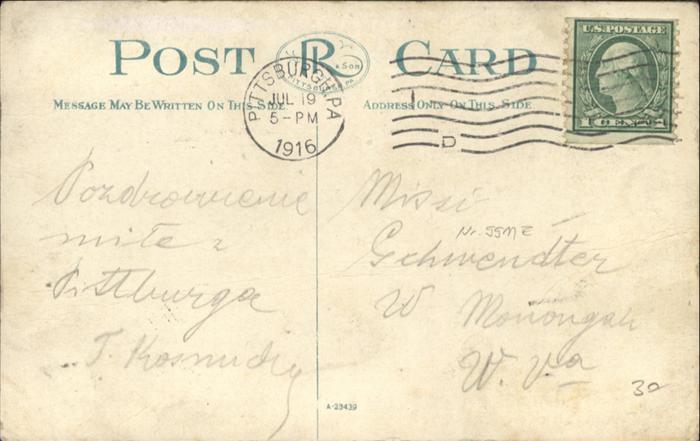 POST CARD
R & SON
PITTSBURGH, PA
MESSAGE MAY BE WRITTEN ON THIS SIDE
ADDRESS ONLY ON THIS SIDE
PITTSBURGH, PA
JUL 19
5-PM
1916
D
U.S. POSTAGE
1 CENT 1
Pozdrowienie
miłe z
Pittburga
T.
Missi
Gchwendter
W Monongah
W. Va
30
A-23439